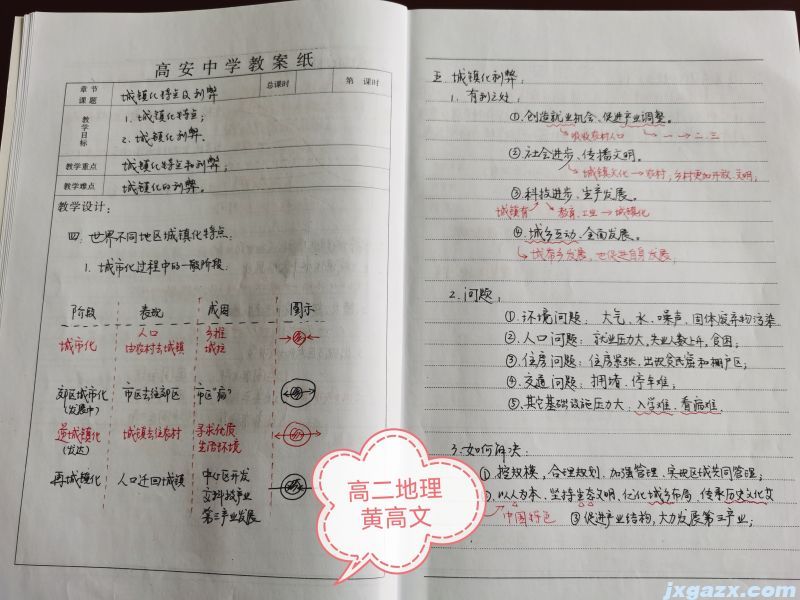 高安中学教案纸
章节课题 城镇化特点及利弊 总课时 第 课时
教学目标 1. 城镇化特点;
2. 城镇化利弊.
教学重点 城镇化特点和利弊;
教学难点 城镇化的利弊。
教学设计:
四. 世界不同地区城镇化特点:
1. 城市化过程中的一般阶段:
阶段 表现 成因 图示
城市化 人口由农村去城镇 乡推城拉
郊区城市化(发展中) 市区去往郊区 市区"病"
逆城镇化(发达) 城镇去往农村 寻求优质生活环境
再城镇化 人口迁回城镇 中心区开发 高科技产业 第三产业发展
五. 城镇化利弊:
1. 有利之处:
①.创造就业机会、促进产业调整。
吸收农村人口 一→二.三
②.社会进步、传播文明。
城镇文化→农村,乡村更加开放、文明,
③.科技进步、生产发展。
城镇有 教育、工业→城镇化
④.城乡互动、全面发展。
城带乡发展,也促进自身发展,
2. 问题:
①.环境问题: 大气、水、噪声、固体废弃物污染
②.人口问题: 就业压力大,失业人数上升,贫困;
③.住房问题: 住房紧张,出现贫民窟和棚户区;
④.交通问题: 拥堵、停车难;
⑤.其它基础设施压力大、入学难、看病难.
3. 如何解决:
①.控规模,合理规划,加强管理,实现区域共同管理;
以人为本、坚持生态文明、优化城乡布局、传承历史文化
中国特色 ③促进产业结构,大力发展第三产业;
高二地理
黄高文
jxgazx.com